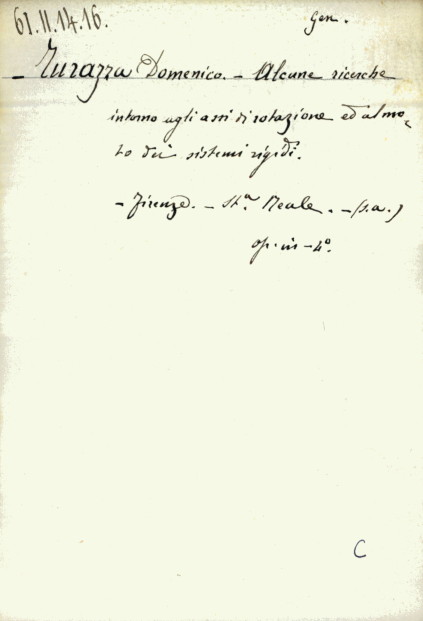 61.II.14.16.
Gen.
- Turazza Domenico. - Alcune ricerche
intorno agli assi di rotazione ed al mo-
to dei sistemi rigidi.
- Firenze. - St.ª Reale. - (s.a.)
op. in - 4º.
C